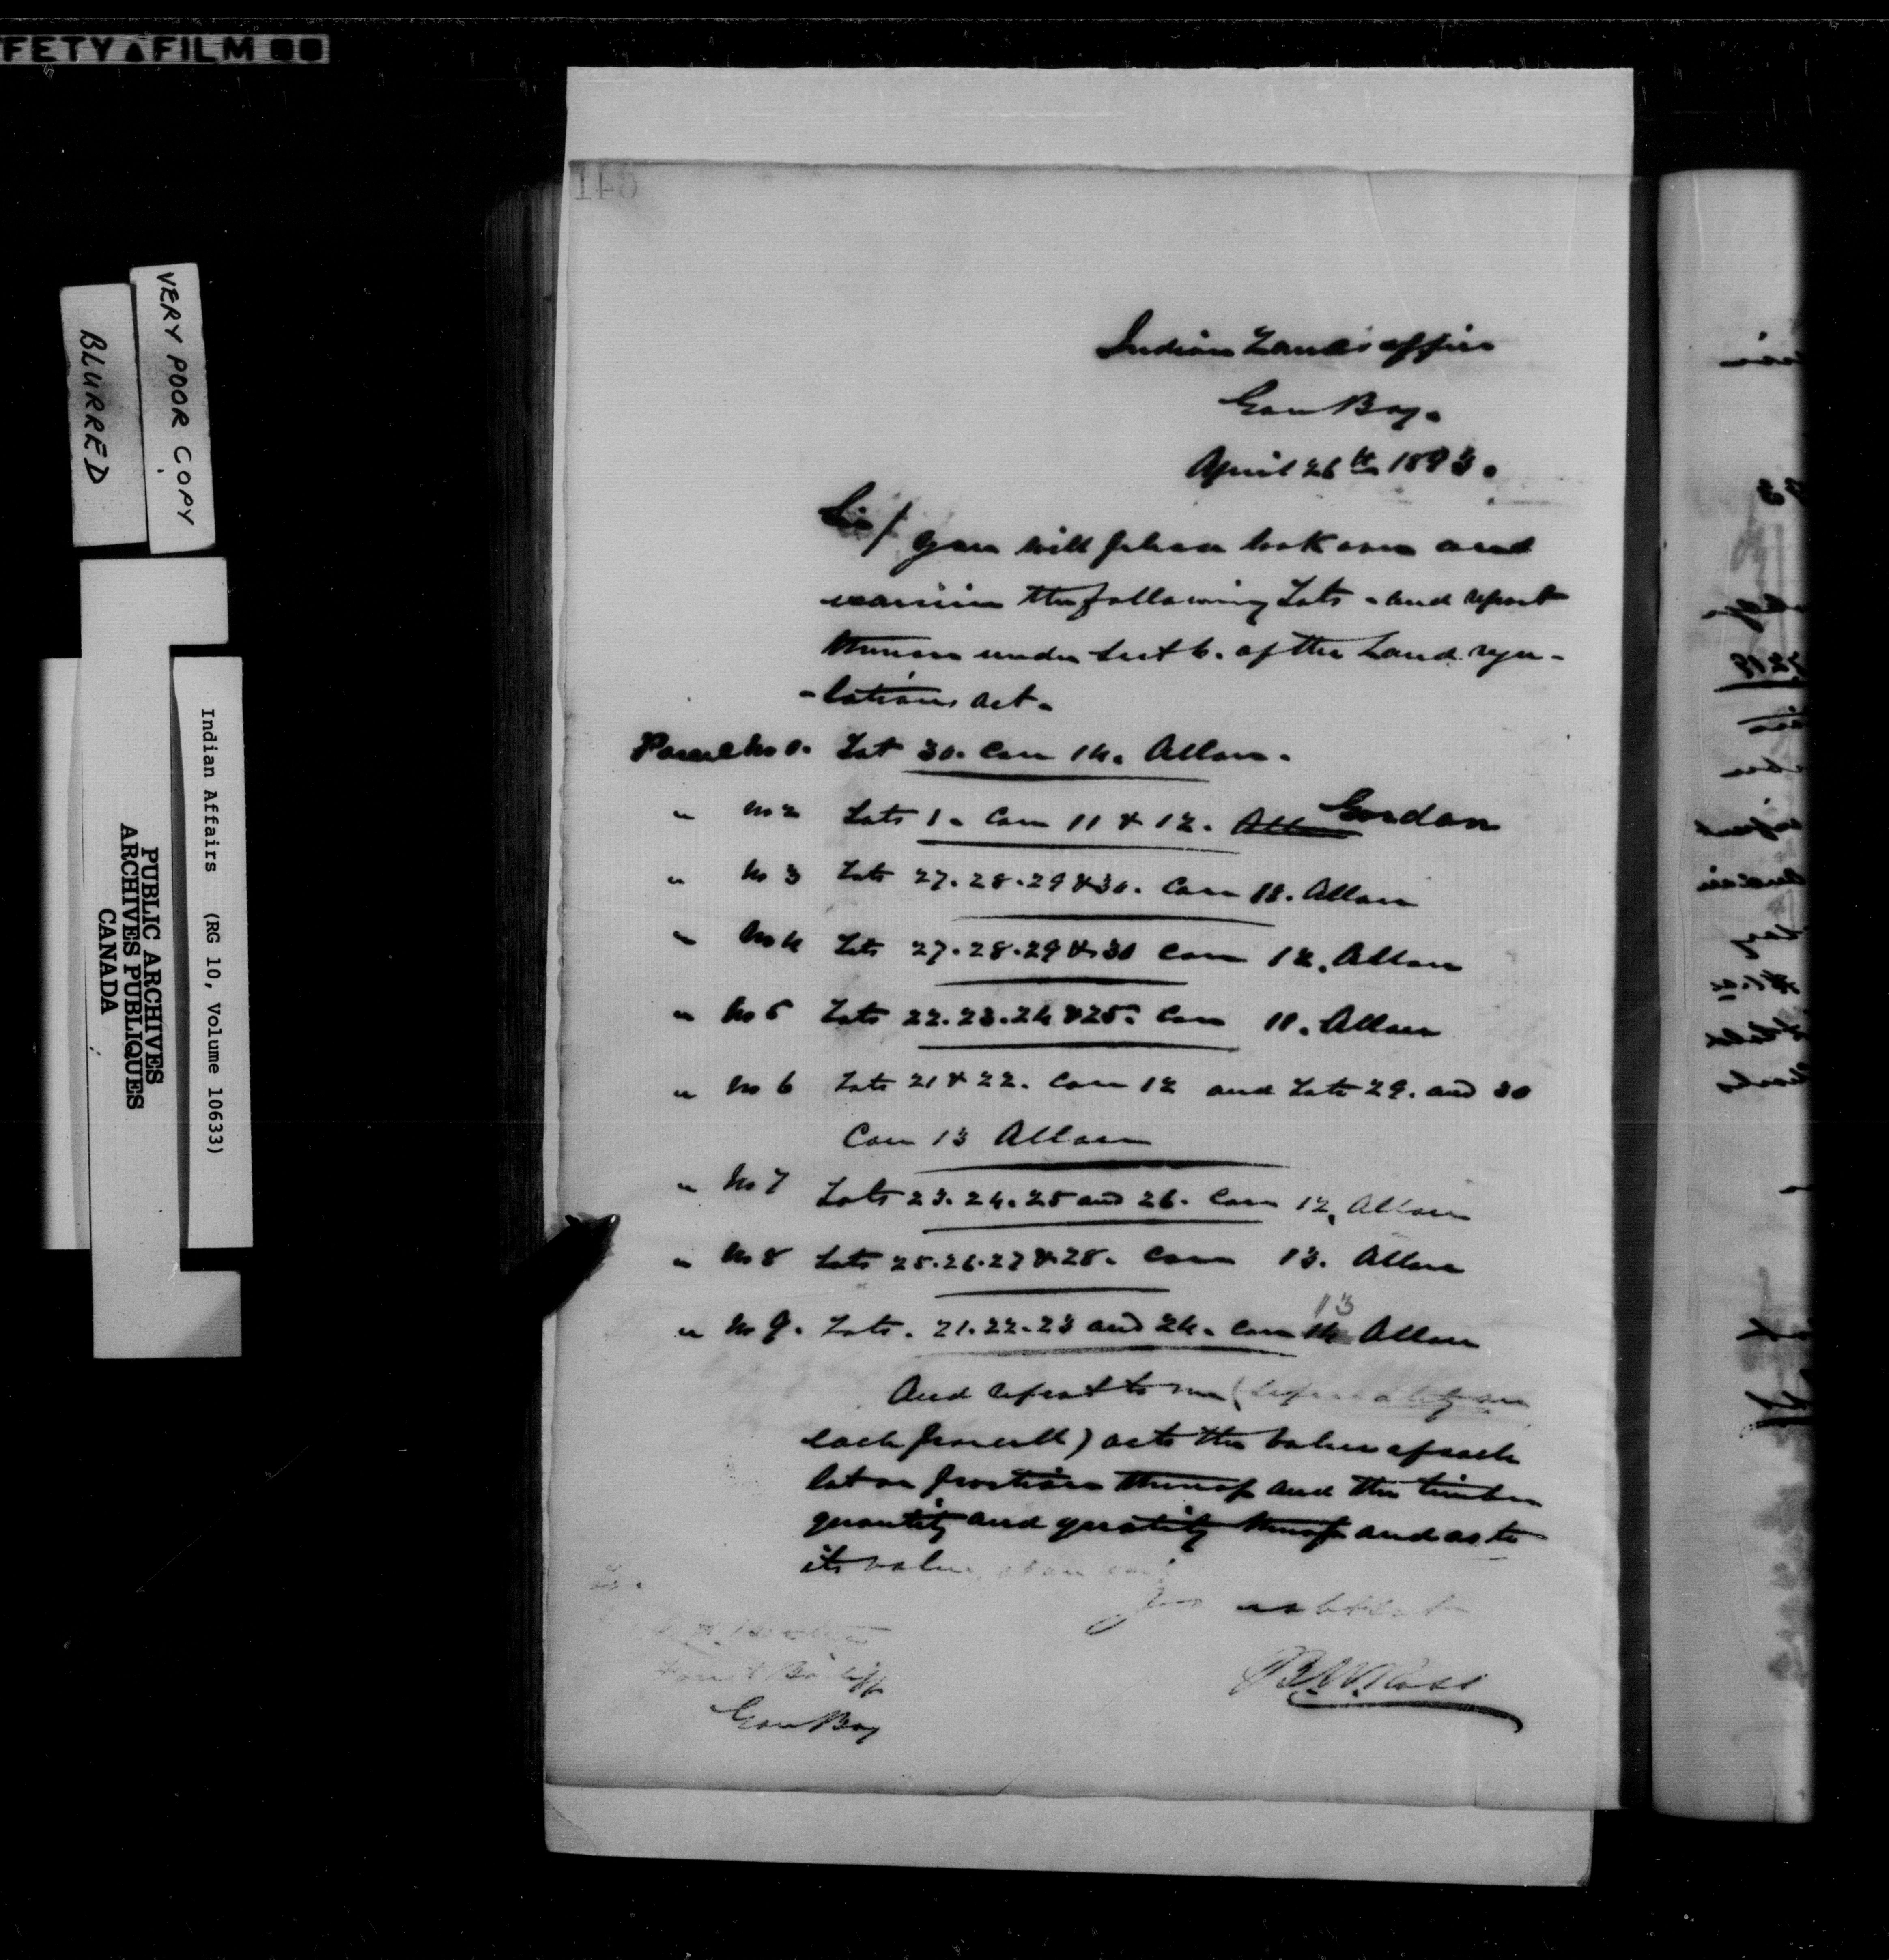 FETY▲FILM
VERY POOR COPY
BLURRED
Indian Affairs (RG 10, Volume 10633)
PUBLIC ARCHIVES
ARCHIVES PUBLIQUES
CANADA
641
Indian Lands office
Gore Bay.
April 26th 1893.
Sir/ you will please look over and
examine the following Lots - and report
thereon under Sect 6. of the Land regu-
-lations Act.
Parcel No 1. Lot 30. Con 14. Allan.
" No 2 Lots 1. Con 11 & 12. Allan Gordon
" No 3 Lots 27.28.29 & 30. Con 11. Allan
" No 4 Lots 27.28.29 & 30 Con 12. Allan
" No 5 Lots 22.23.24 & 25. Con 11. Allan
" No 6 Lots 21 & 22. Con 12 and Lots 29. and 30
Con 13 Allan
" No 7 Lots 23.24.25 and 26. Con 12. Allan
" No 8 Lots 25.26.27 & 28. Con 13. Allan
" No 9. Lots. 21.22.23 and 24. Con 14 13 Allan
And report to me (separately on
each parcell) as to the value of each
lot or portion thereof and the timber
quantity and quality thereof and as to
its value
Your
B.W. Ross
Forest Bailiff
Gore Bay